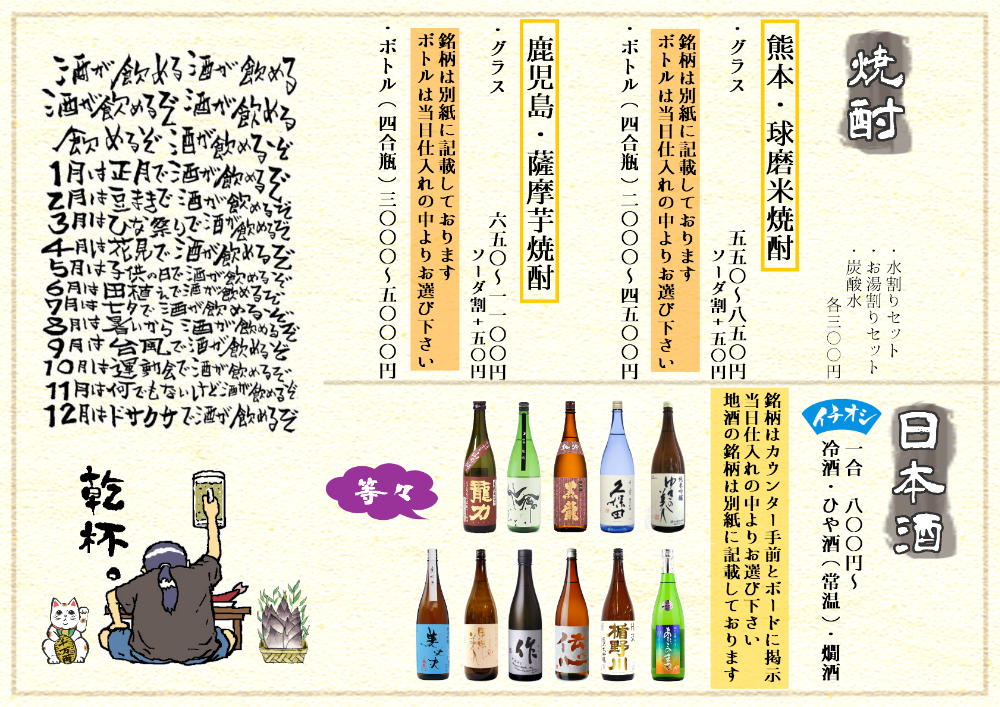 焼酎
・水割りセット
・お湯割りセット
炭酸水
各三〇〇円
熊本・球磨米焼酎
・グラス 五五〇〜八五〇円
ソーダ割+五〇円
銘柄は別紙に記載しております
ボトルは当日仕入れの中よりお選び下さい
・ボトル（四合瓶）二〇〇〇〜四五〇〇円
鹿児島・薩摩芋焼酎
・グラス 六五〇〜一一〇〇円
ソーダ割+五〇円
銘柄は別紙に記載しております
ボトルは当日仕入れの中よりお選び下さい
・ボトル（四合瓶）三〇〇〇〜五〇〇〇円
日本酒
イチオシ
一合 八〇〇円〜
冷酒・ひや酒（常温）・燗酒
銘柄はカウンター手前とボードに掲示
当日仕入れの中よりお選び下さい
地酒の銘柄は別紙に記載しております
龍力
黒龍
久保田
純米吟醸
ゆきの美人
等々
美丈夫
作
伝心
楯野川
あさひのまち
酒が飲める酒が飲める
酒が飲めるぞ酒が飲める
飲めるぞ酒が飲めるぞ
1月は正月で酒が飲めるぞ
2月は豆まきで酒が飲めるぞ
3月はひな祭りで酒が飲めるぞ
4月は花見で酒が飲めるぞ
5月は子供の日で酒が飲めるぞ
6月は田植えで酒が飲めるぞ
7月は七夕で酒が飲めるぞ
8月は暑いから酒が飲めるぞ
9月は台風で酒が飲めるぞ
10月は運動会で酒が飲めるぞ
11月は何でもないけど酒が飲めるぞ
12月はドサクサで酒が飲めるぞ
乾杯。
千万両